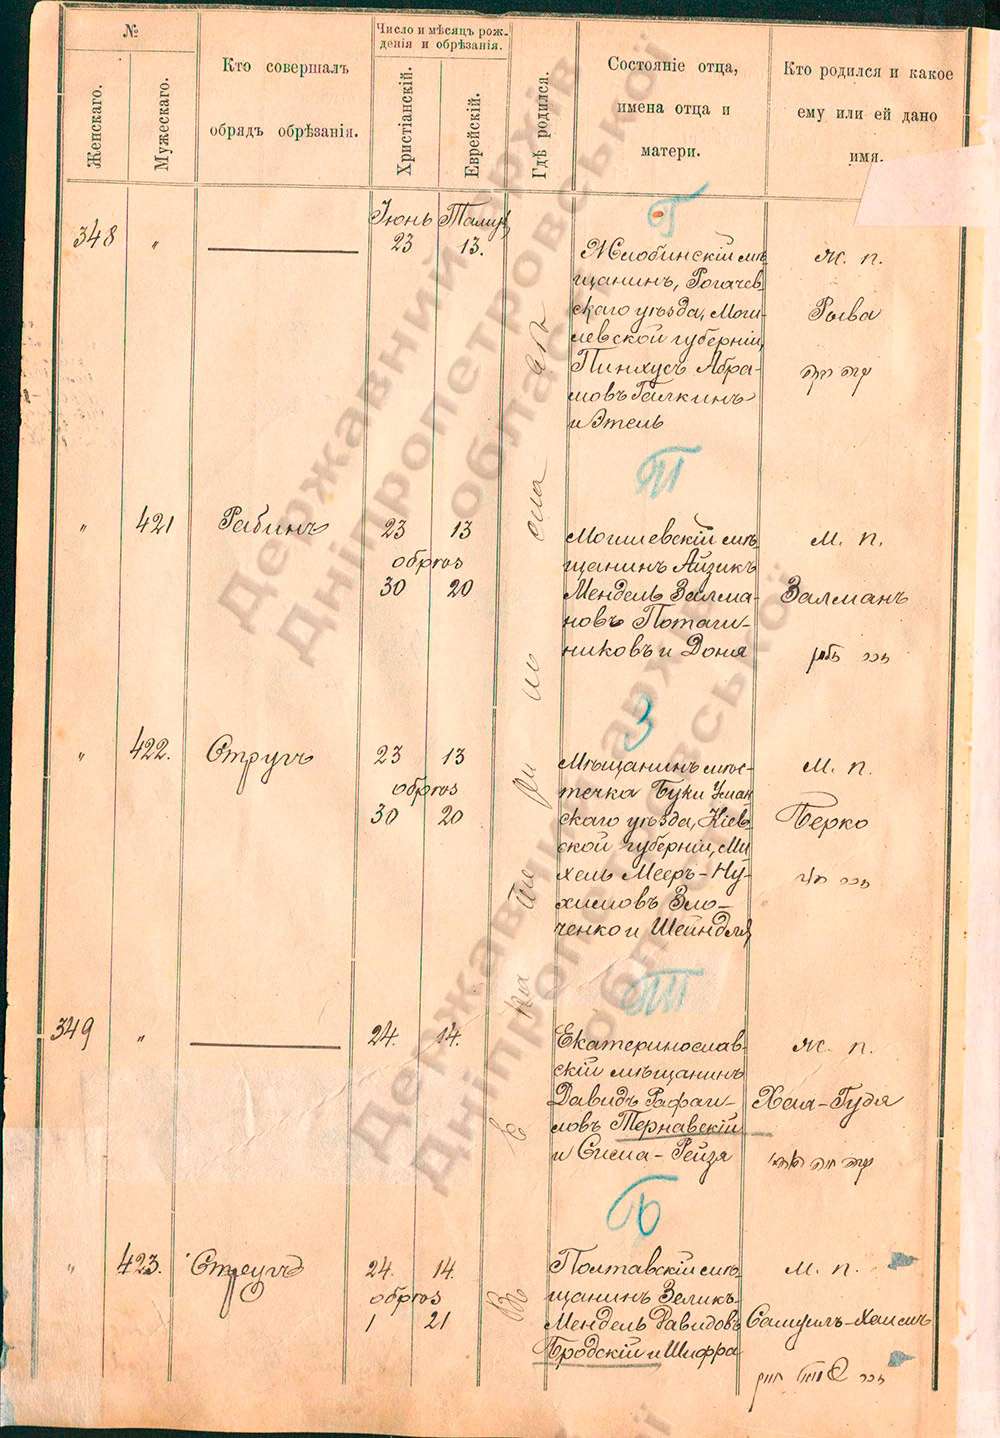 №
Женскаго.
Мужескаго.
Кто совершалъ
обрядъ обрѣзанія.
Число и мѣсяцъ рож-
денія и обрѣзанія.
Христіанскій.
Еврейскій.
Гдѣ родился.
Состояніе отца,
имена отца и
матери.
Кто родился и какое
ему или ей дано
имя.
Въ Екатеринославѣ
Г
348 „
Іюнь Тамуз
23 13.
Жлобинскій мѣ-
щанинъ, Рогачев-
скаго уѣзда, Моги-
левской губерніи,
Пинхусъ Абра-
мовъ Галкинъ
и Этель
Ж. п.
Рыва
П
„ 421 Рабинъ
23 13
обрѣз
30 20
Могилевскій мѣ-
щанинъ Айзикъ
Мендель Залма-
новъ
никовъ и Доня
М. п.
Залманъ
זכר זלמן
З
„ 422. Стругъ
23 13
обрѣз
30 20
Мѣщанинъ мѣс-
течка Буки Уман
скаго уѣзда, Кіев-
ской губерніи, Ми
хель Мееръ-Ну-
химовъ Зло-
ченко и Шейндля
М. п.
Берко
זכר
Т
349 „
24. 14.
Екатеринослав-
скій мѣщанинъ
Давидъ Рафаи-
ловъ Тернавскій
и Сисма-Рейзя
Ж. п.
Хая-Гудя
Б
„ 423. Стругъ
24. 14.
обрѣз
1 21
Полтавскій мѣ-
щанинъ Зеликъ-
Мендель Давидовъ
Бродскій и Шифра
М. п.
Самуилъ-Хаимъ
Державний архів
Дніпропетровської
області
Державний архів
Дніпропетровської
області